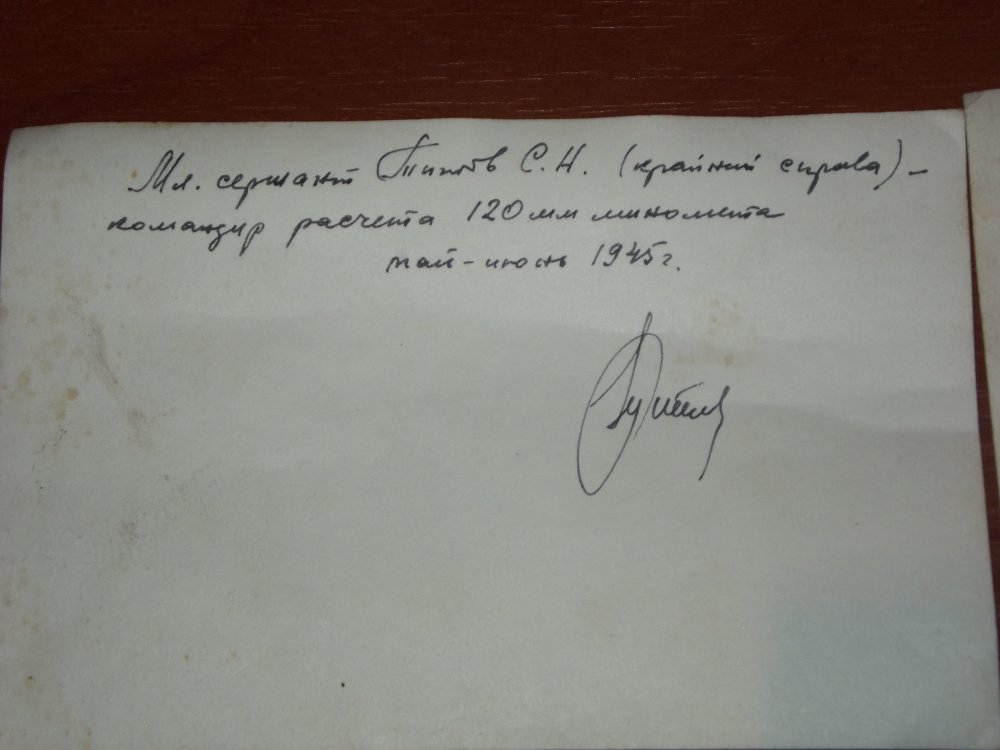 Мл. сержант Титов С.Н. (крайний справа) –
командир расчета 120 мм миномета
май-июнь 1945 г.